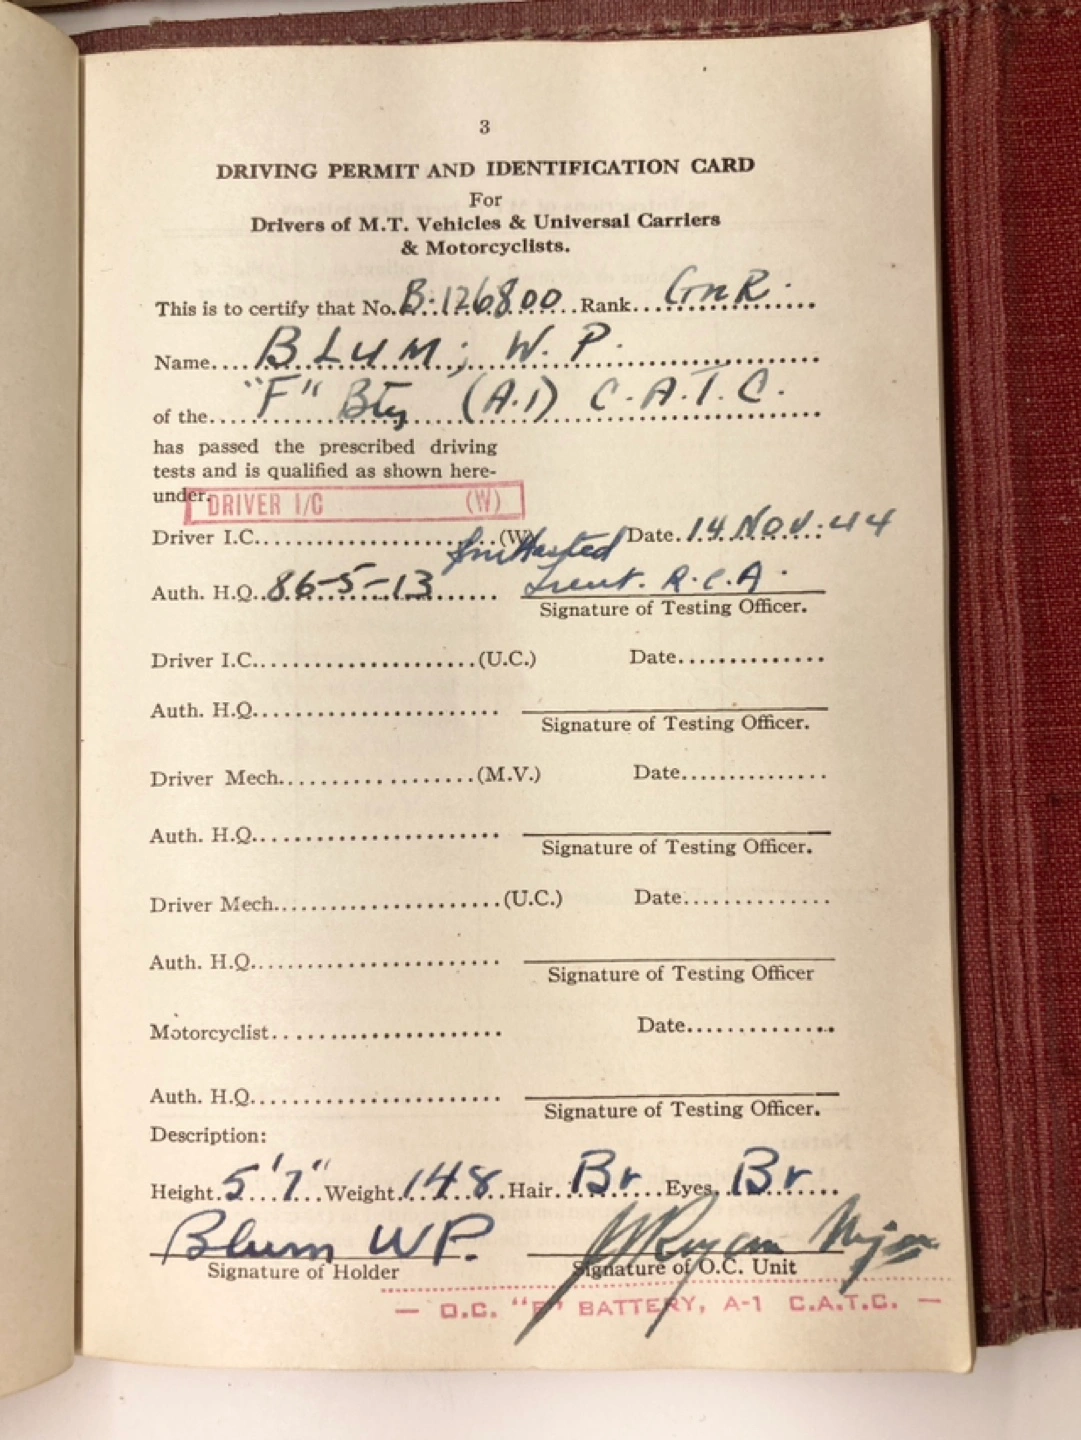 3
DRIVING PERMIT AND IDENTIFICATION CARD
For
Drivers of M.T. Vehicles & Universal Carriers
& Motorcyclists.
This is to certify that No. B-126800 Rank GnR.
Name BLUM; W. P.
of the "F" Bty (A.1) C.A.T.C.
has passed the prescribed driving
tests and is qualified as shown here-
under.
DRIVER I/C (W)
Driver I.C. (W) Date. 14 NOV. 44
Auth. H.Q. 86-5-13 Lieut. R.C.A.
Signature of Testing Officer.
Driver I.C. (U.C.) Date
Auth. H.Q.
Signature of Testing Officer.
Driver Mech. (M.V.) Date
Auth. H.Q.
Signature of Testing Officer.
Driver Mech. (U.C.) Date
Auth. H.Q.
Signature of Testing Officer
Motorcyclist Date
Auth. H.Q.
Signature of Testing Officer.
Description:
Height. 5'7" Weight. 148 Hair. Br Eyes. Br
Blum WP.
Signature of Holder Signature of O.C. Unit
— O.C. "F" BATTERY, A-1 C.A.T.C. —